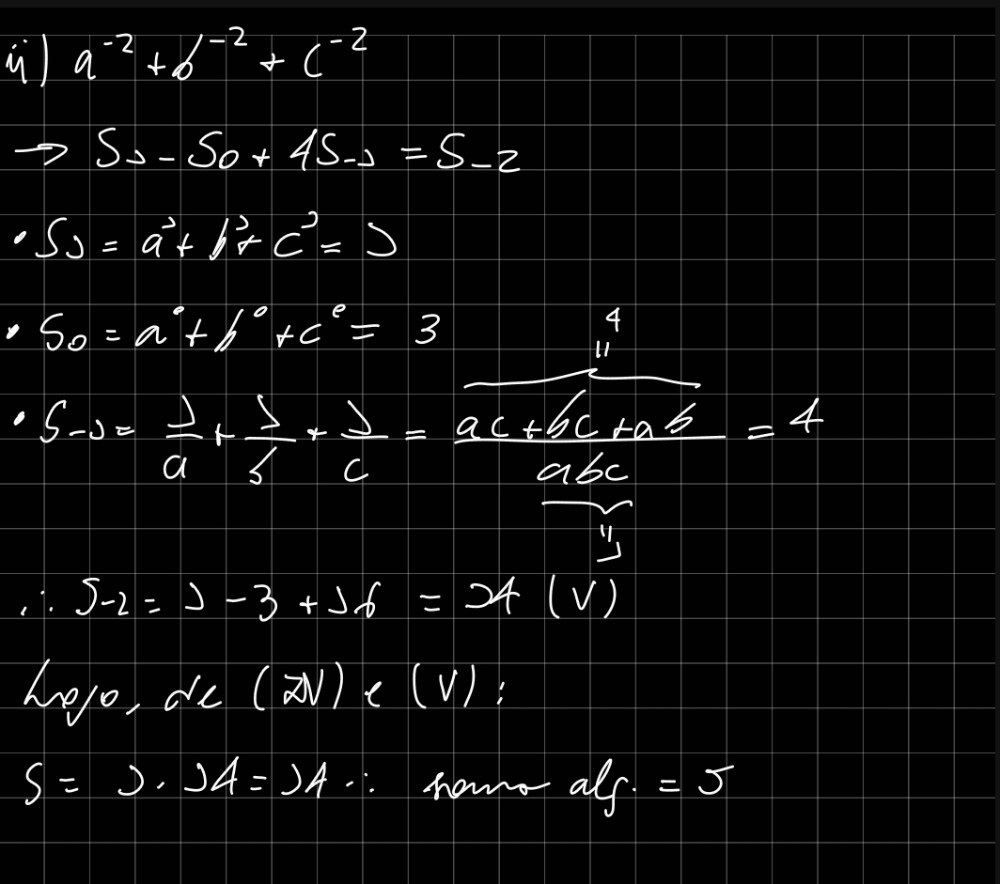 ii) a⁻² + b⁻² + c⁻²
→ S₁ - S₀ + 4S₋₁ = S₋₂
• S₁ = a¹ + b¹ + c¹ = 1
• S₀ = a⁰ + b⁰ + c⁰ = 3
4
=
• S₋₁ = 1/a + 1/b + 1/c = (ac + bc + ab)/(abc) = 4
= 1
∴ S₋₂ = 1 - 3 + 16 = 14 (V)
Logo, de (IV) e (V):
S = 1 · 14 = 14 ∴ soma alg. = 5